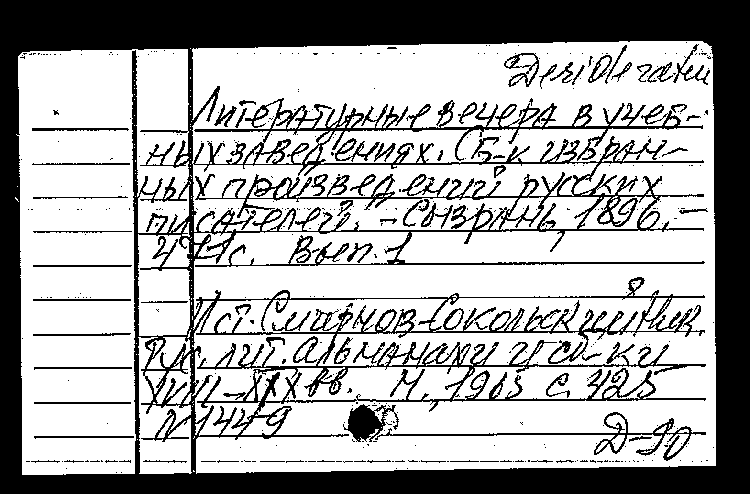 Desiderata
Литературные вечера в учеб-
ных заведениях. Сб-к избран-
ных произведений русских
писателей. - Сызрань, 1896. -
с. Вып. 1
Ист. Смирнов-Сокольский Ник.
Рус. лит. альманахи и сб-ки
XVIII-XIX вв. М., 1965 с. 425
N 1449
Д-90